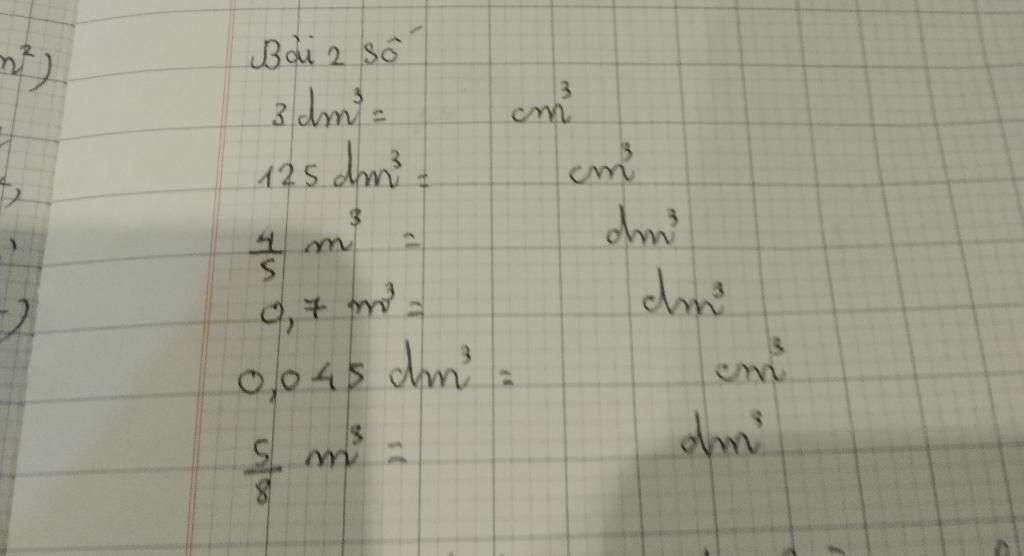 n²)
Bài 2 số
3 dm³ = cm³
125 dm³ = cm³
4/5 m³ = dm³
0,7 m³ = dm³
0,045 dm³ = cm³
5/8 m³ = dm³